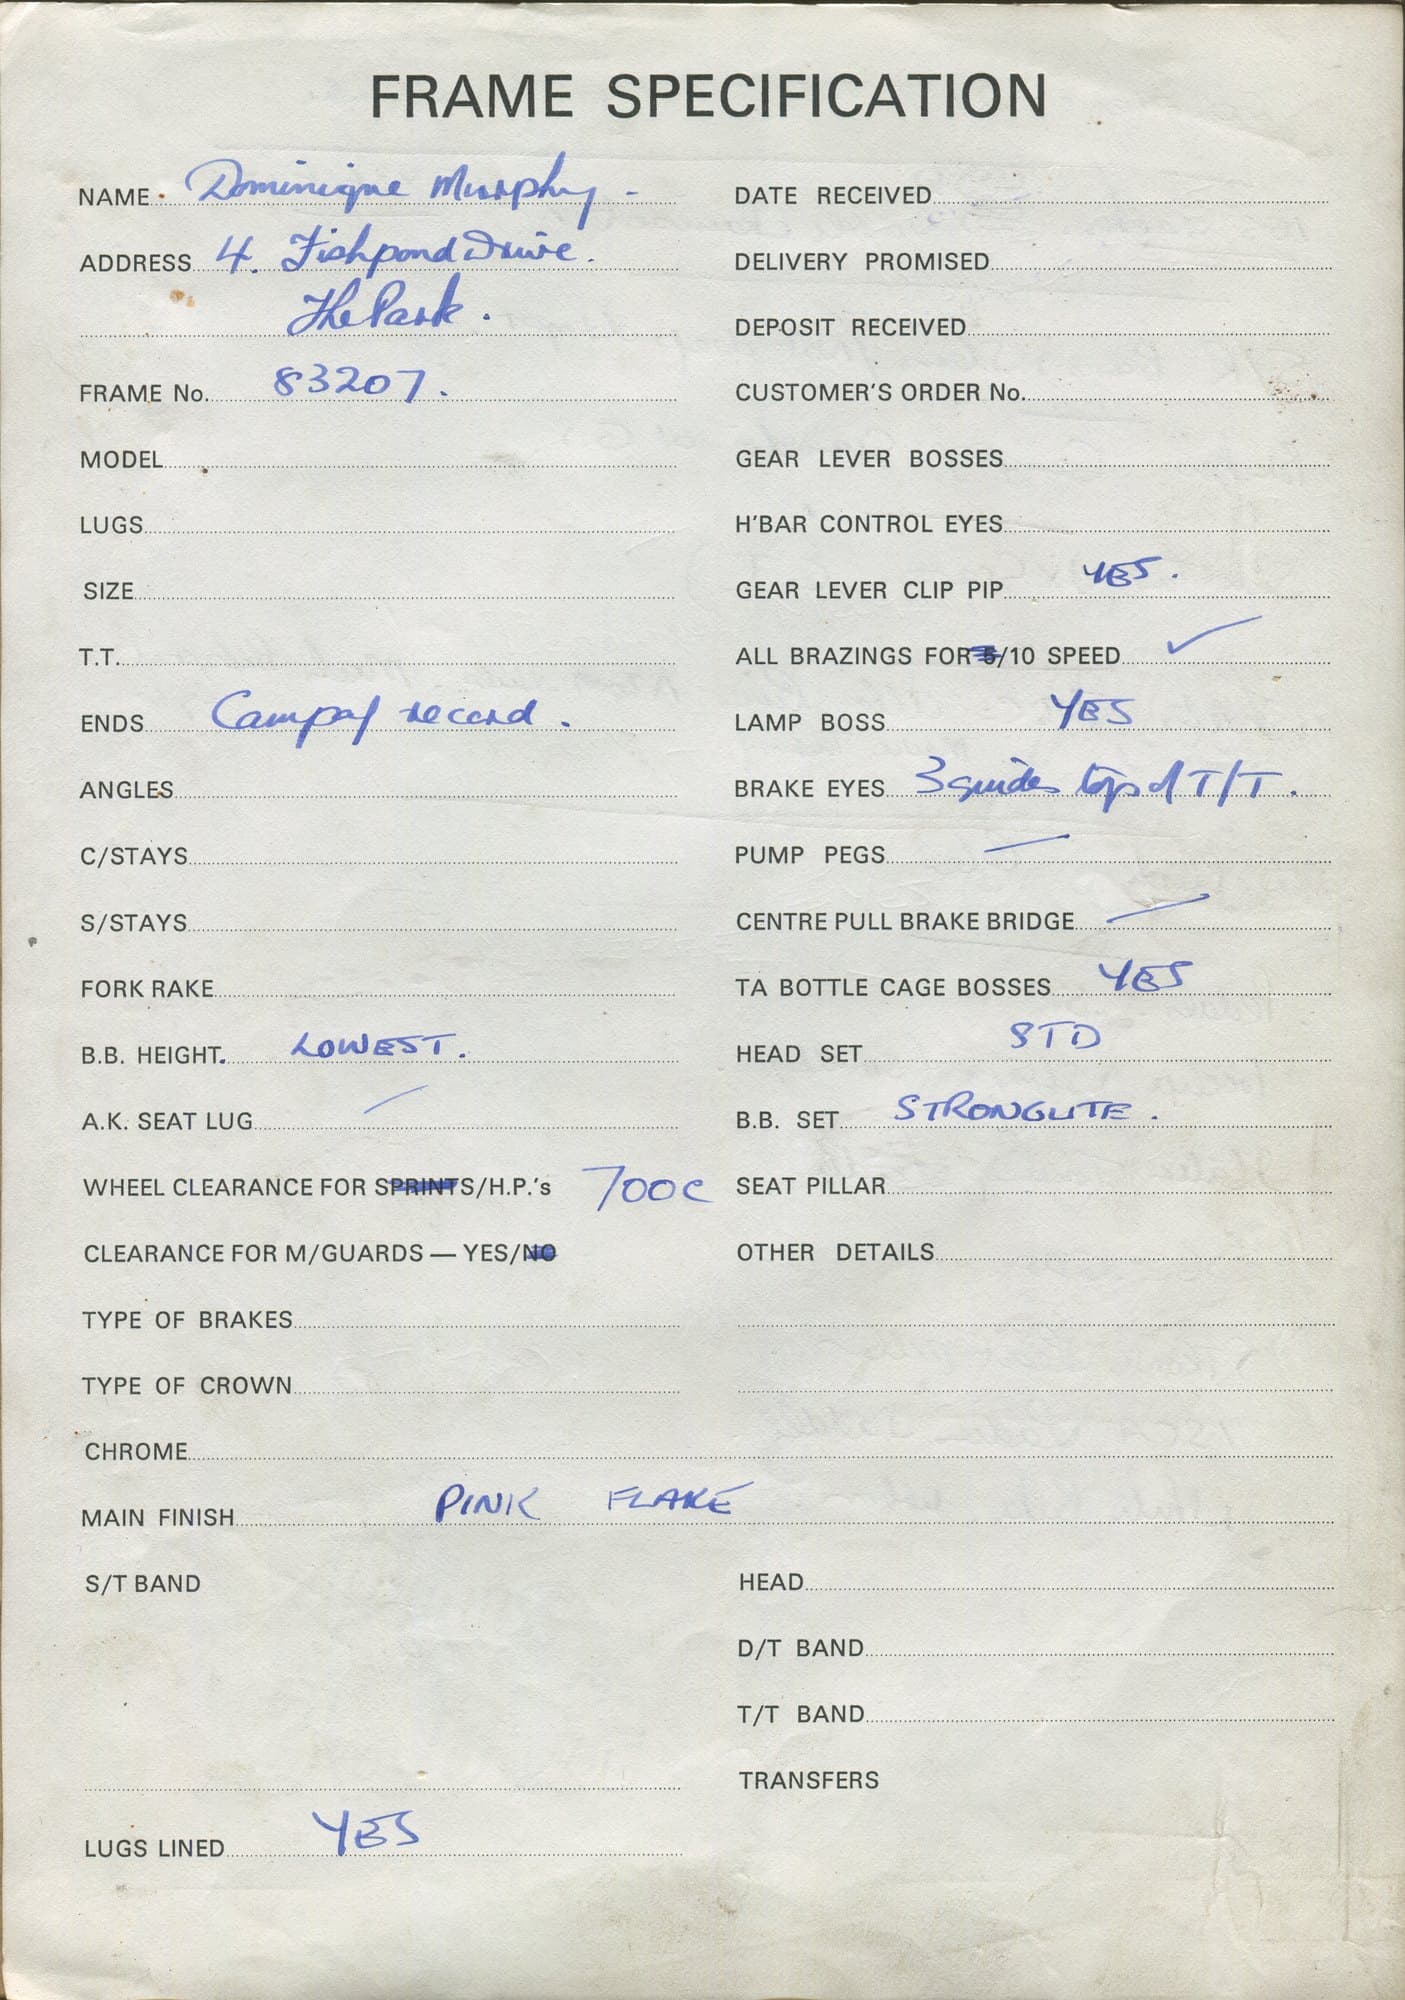 FRAME SPECIFICATION
NAME Dominique Murphy -
ADDRESS 4. Fishpond Drive.
The Park.
FRAME No. 83207.
MODEL
LUGS
SIZE
T.T.
ENDS Campag record.
ANGLES
C/STAYS
S/STAYS
FORK RAKE
B.B. HEIGHT. LOWEST.
A.K. SEAT LUG
WHEEL CLEARANCE FOR SPRINTS/H.P.'s 700c
CLEARANCE FOR M/GUARDS — YES/NO
TYPE OF BRAKES
TYPE OF CROWN
DATE RECEIVED
DELIVERY PROMISED
DEPOSIT RECEIVED
CUSTOMER'S ORDER No.
GEAR LEVER BOSSES
H'BAR CONTROL EYES
GEAR LEVER CLIP PIP YES.
ALL BRAZINGS FOR 5/10 SPEED ✓
LAMP BOSS YES
BRAKE EYES 3 guides top of T/T.
PUMP PEGS —
CENTRE PULL BRAKE BRIDGE —
TA BOTTLE CAGE BOSSES YES
HEAD SET STD
B.B. SET STRONGLITE.
SEAT PILLAR
OTHER DETAILS
CHROME
MAIN FINISH PINK FLAKE
S/T BAND
LUGS LINED YES
HEAD
D/T BAND
T/T BAND
TRANSFERS